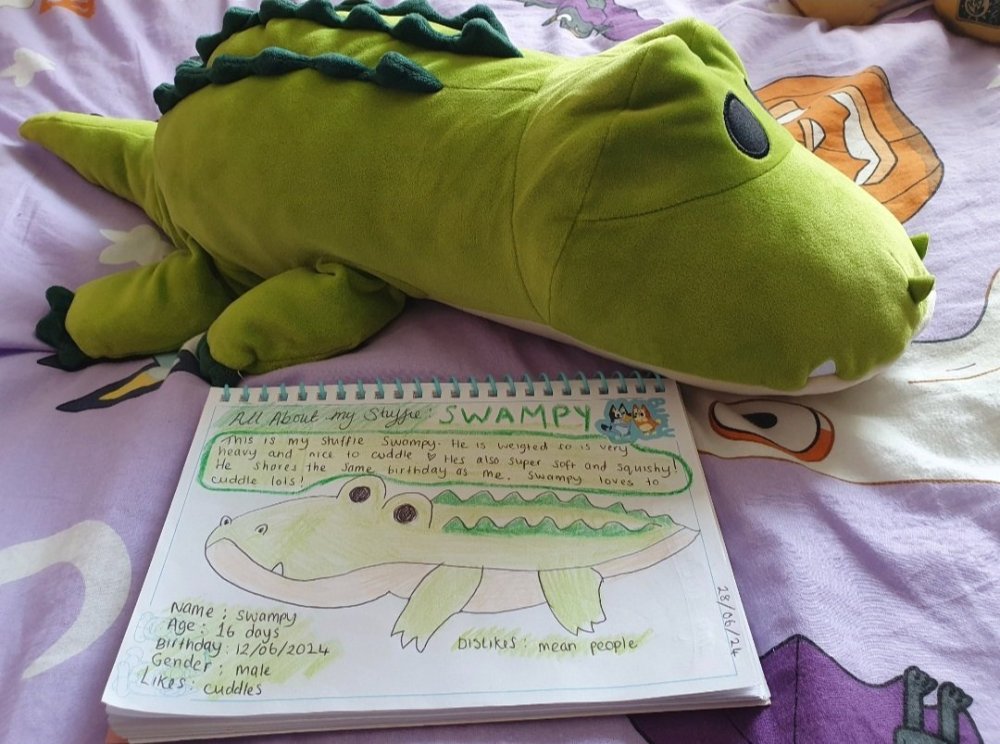 All About my Stuffie: SWAMPY
This is my stuffie Swampy. He is weigted so is very
heavy and nice to cuddle ♡ Hes also super soft and squishy!
He shares the same birthday as me. Swampy loves to
cuddle lots!
Name : Swampy
Age : 16 days
Birthday : 12/06/2024
Gender : male
Likes : cuddles
Dislikes : mean people
28/06/24